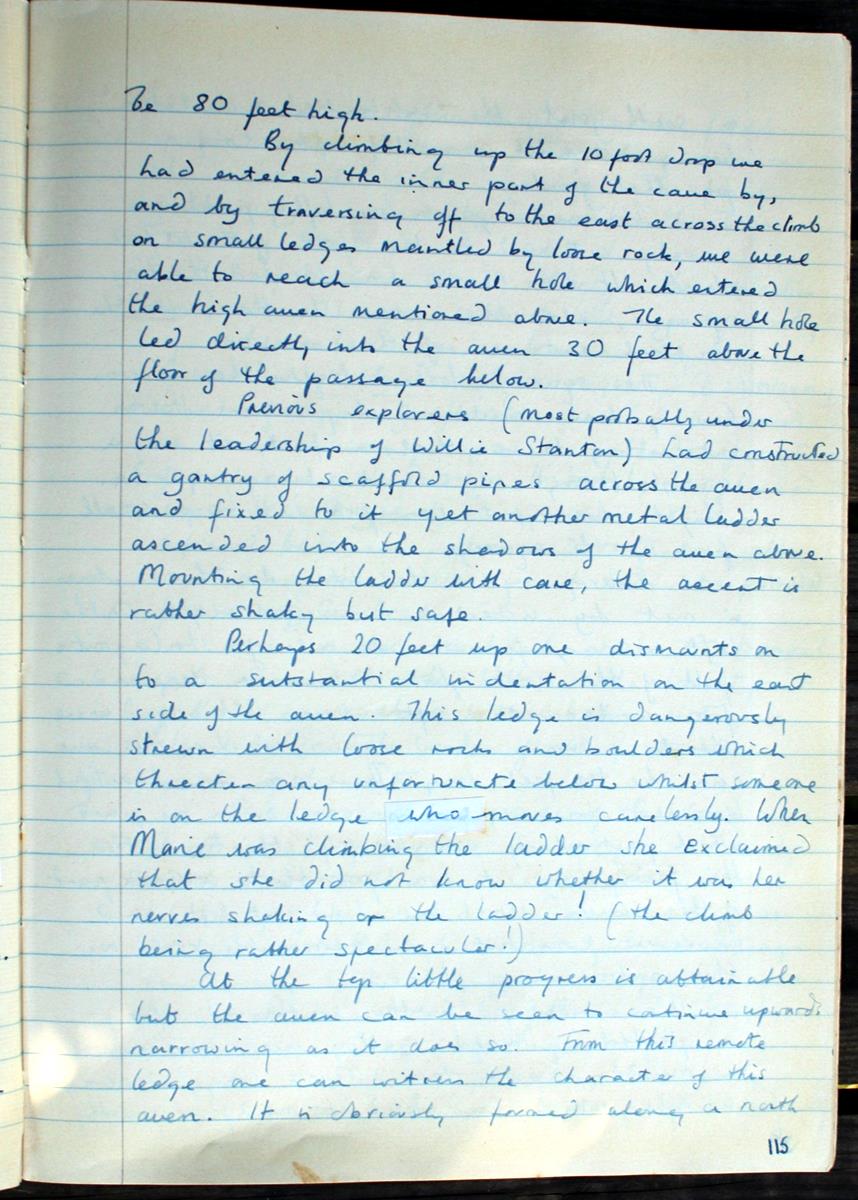 be 80 feet high.
By climbing up the 10 foot drop we
had entered the inner part of the cave by,
and by traversing off to the east across the climb
on small ledges mantled by loose rock, we were
able to reach a small hole which entered
the high aven mentioned above. The small hole
led directly into the aven 30 feet above the
floor of the passage below.
Previous explorers (most probably under
the leadership of Willie Stanton) had constructed
a gantry of scaffold pipes across the aven
and fixed to it yet another metal ladder
ascended into the shadows of the aven above.
Mounting the ladder with care, the ascent is
rather shaky but safe.
Perhaps 20 feet up one dismounts on
to a substantial indentation on the east
side of the aven. This ledge is dangerously
strewn with loose rocks and boulders which
threaten any unfortunate below whilst someone
is on the ledge who moves carelessly. When
Marie was climbing the ladder she exclaimed
that she did not know whether it was her
nerves shaking or the ladder! (the climb
being rather spectacular!)
At the top little progress is obtainable
but the aven can be seen to continue upwards
narrowing as it does so. From this remote
ledge one can witness the character of this
aven. It is obviously formed along a north
115